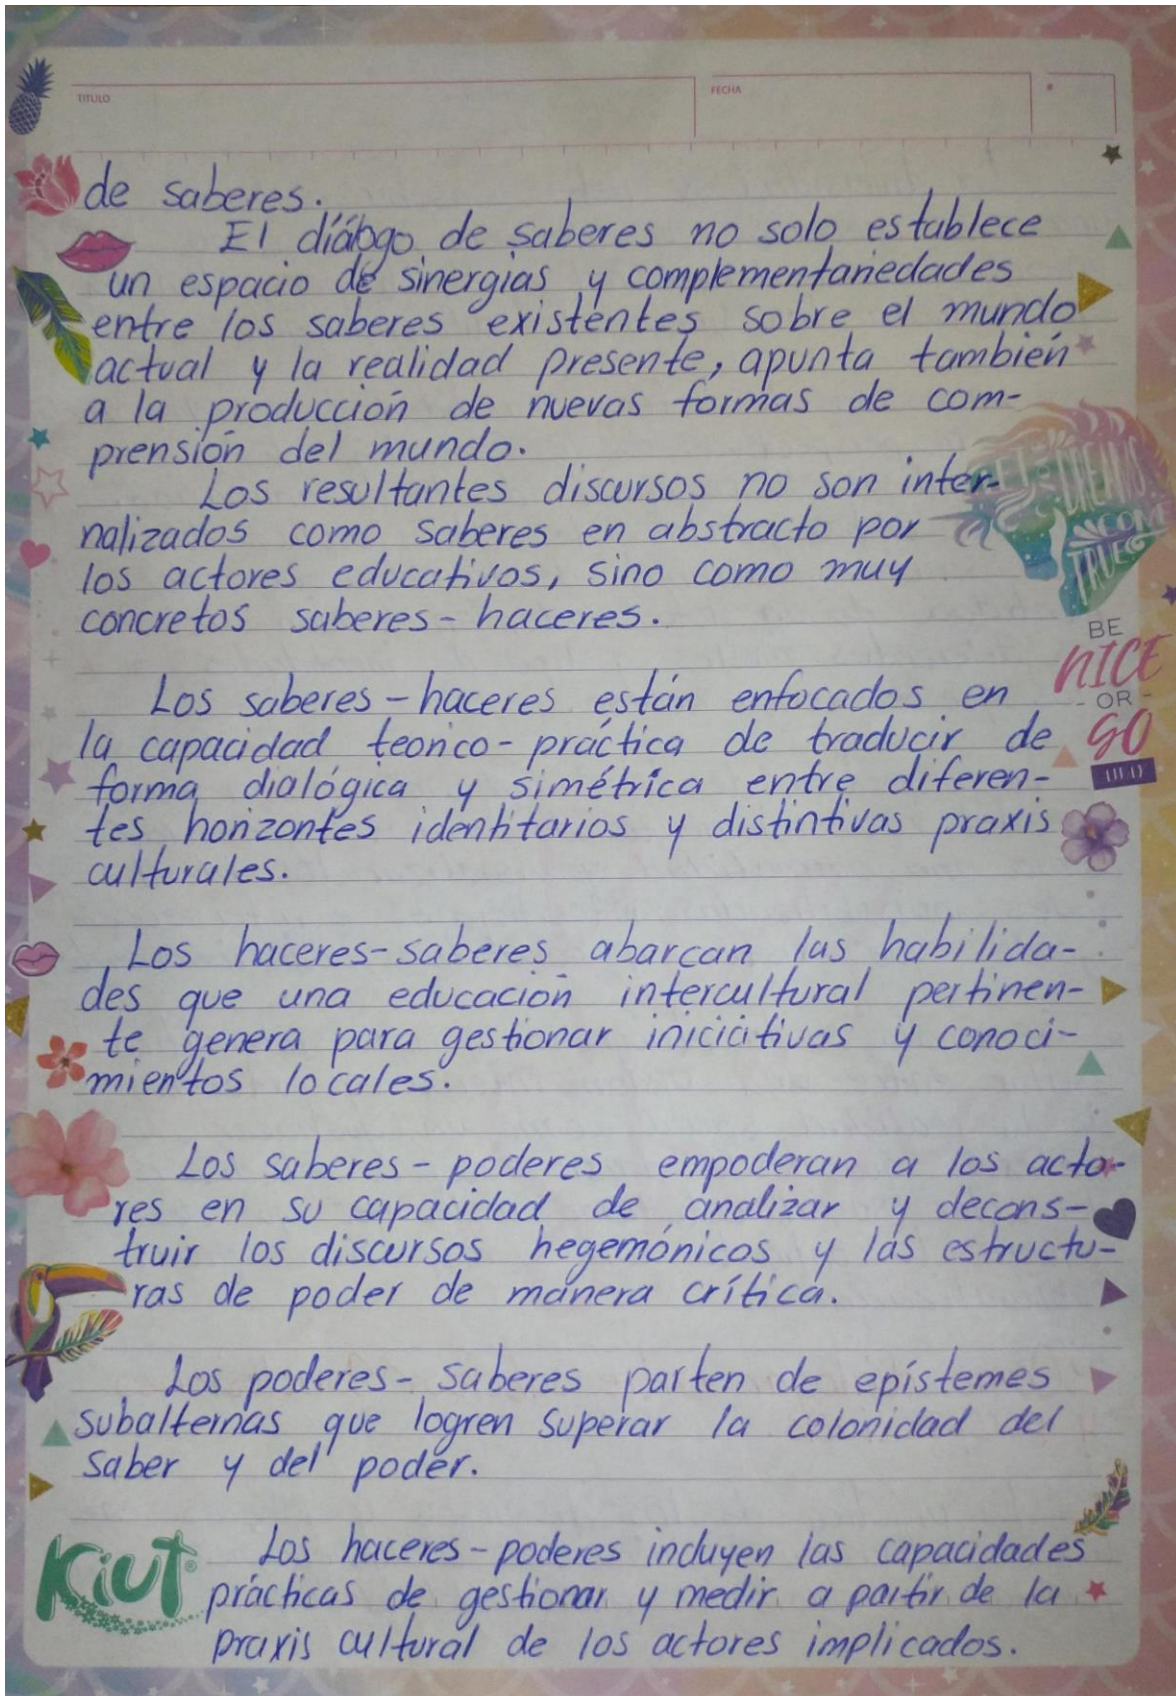 TITULO
FECHA
de saberes.
El diálogo de saberes no solo establece
un espacio de sinergias y complementariedades
entre los saberes existentes sobre el mundo
actual y la realidad presente, apunta también
a la producción de nuevas formas de com-
prensión del mundo.
Los resultantes discursos no son inter-
nalizados como saberes en abstracto por
los actores educativos, sino como muy
concretos saberes-haceres.
BE
NICE
- OR -
GO
Los saberes-haceres están enfocados en
la capacidad teorico-práctica de traducir de
forma dialógica y simétrica entre diferen-
tes horizontes identitarios y distintivas praxis
culturales.
Los haceres-saberes abarcan las habilida-
des que una educación intercultural pertinen-
te genera para gestionar iniciativas y conoci-
mientos locales.
Los saberes-poderes empoderan a los acto-
res en su capacidad de analizar y decons-
truir los discursos hegemónicos y las estructu-
ras de poder de manera crítica.
Los poderes-saberes parten de epístemes
subalternas que logren superar la colonidad del
saber y del poder.
Kiut
Los haceres-poderes incluyen las capacidades
prácticas de gestionar y medir a partir de la
praxis cultural de los actores implicados.